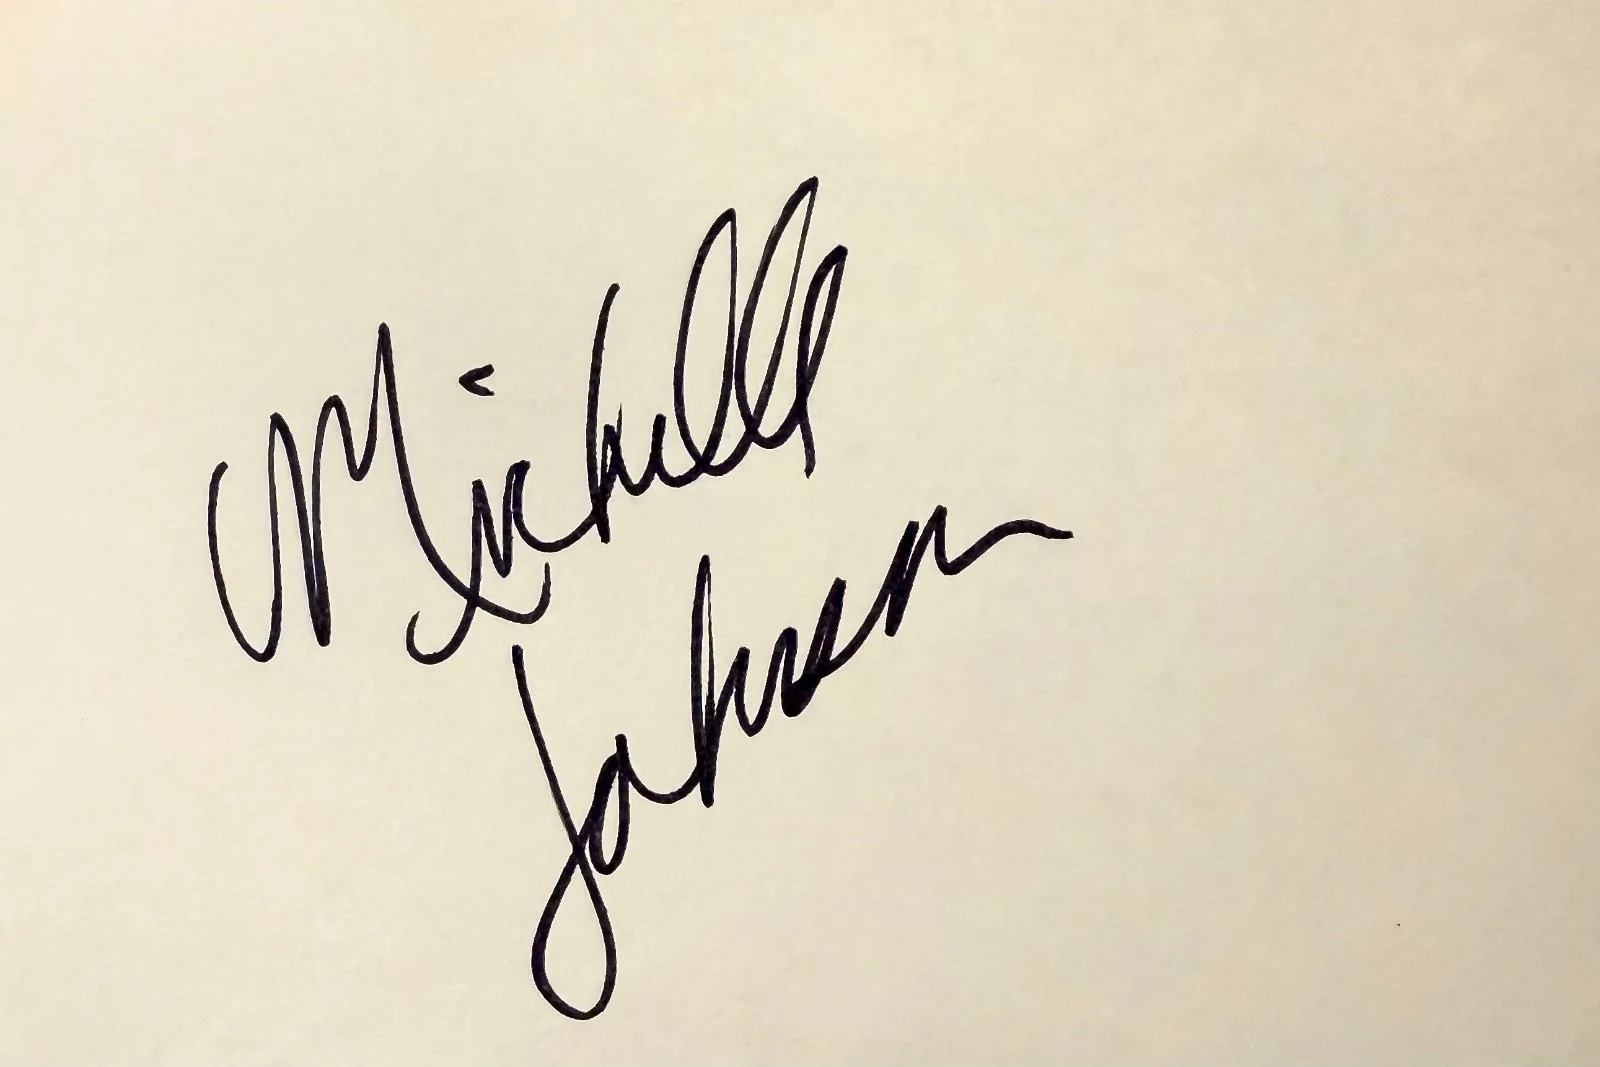 Michelle
Johnson